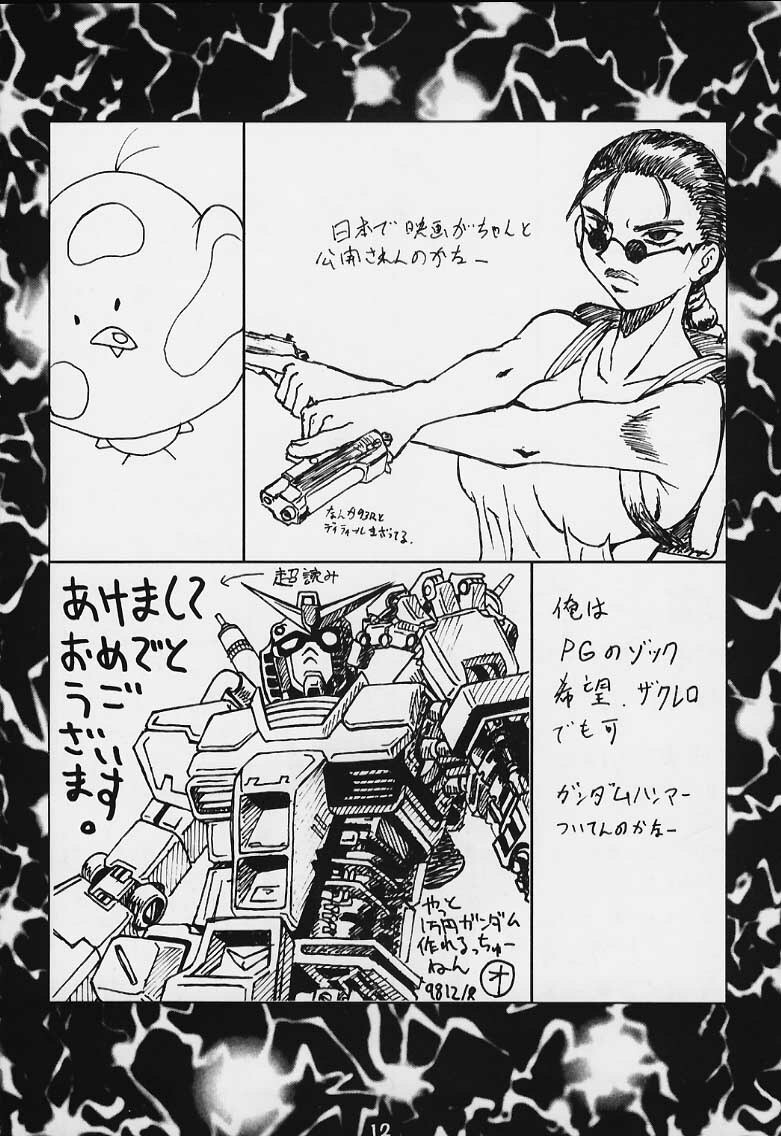 日本で映画がちゃんと
公開されんのかなー
なんか93Rと
ディティールまざってる。
超読み
あけまして
おめでと
うござ
います。
俺は
PGのゾック
希望.ザクレロ
でも可
ガンダムハンマー
ついてんのかなー
やっと
1万円ガンダム
作れるっちゅー
ねん
オ
9812/R
12